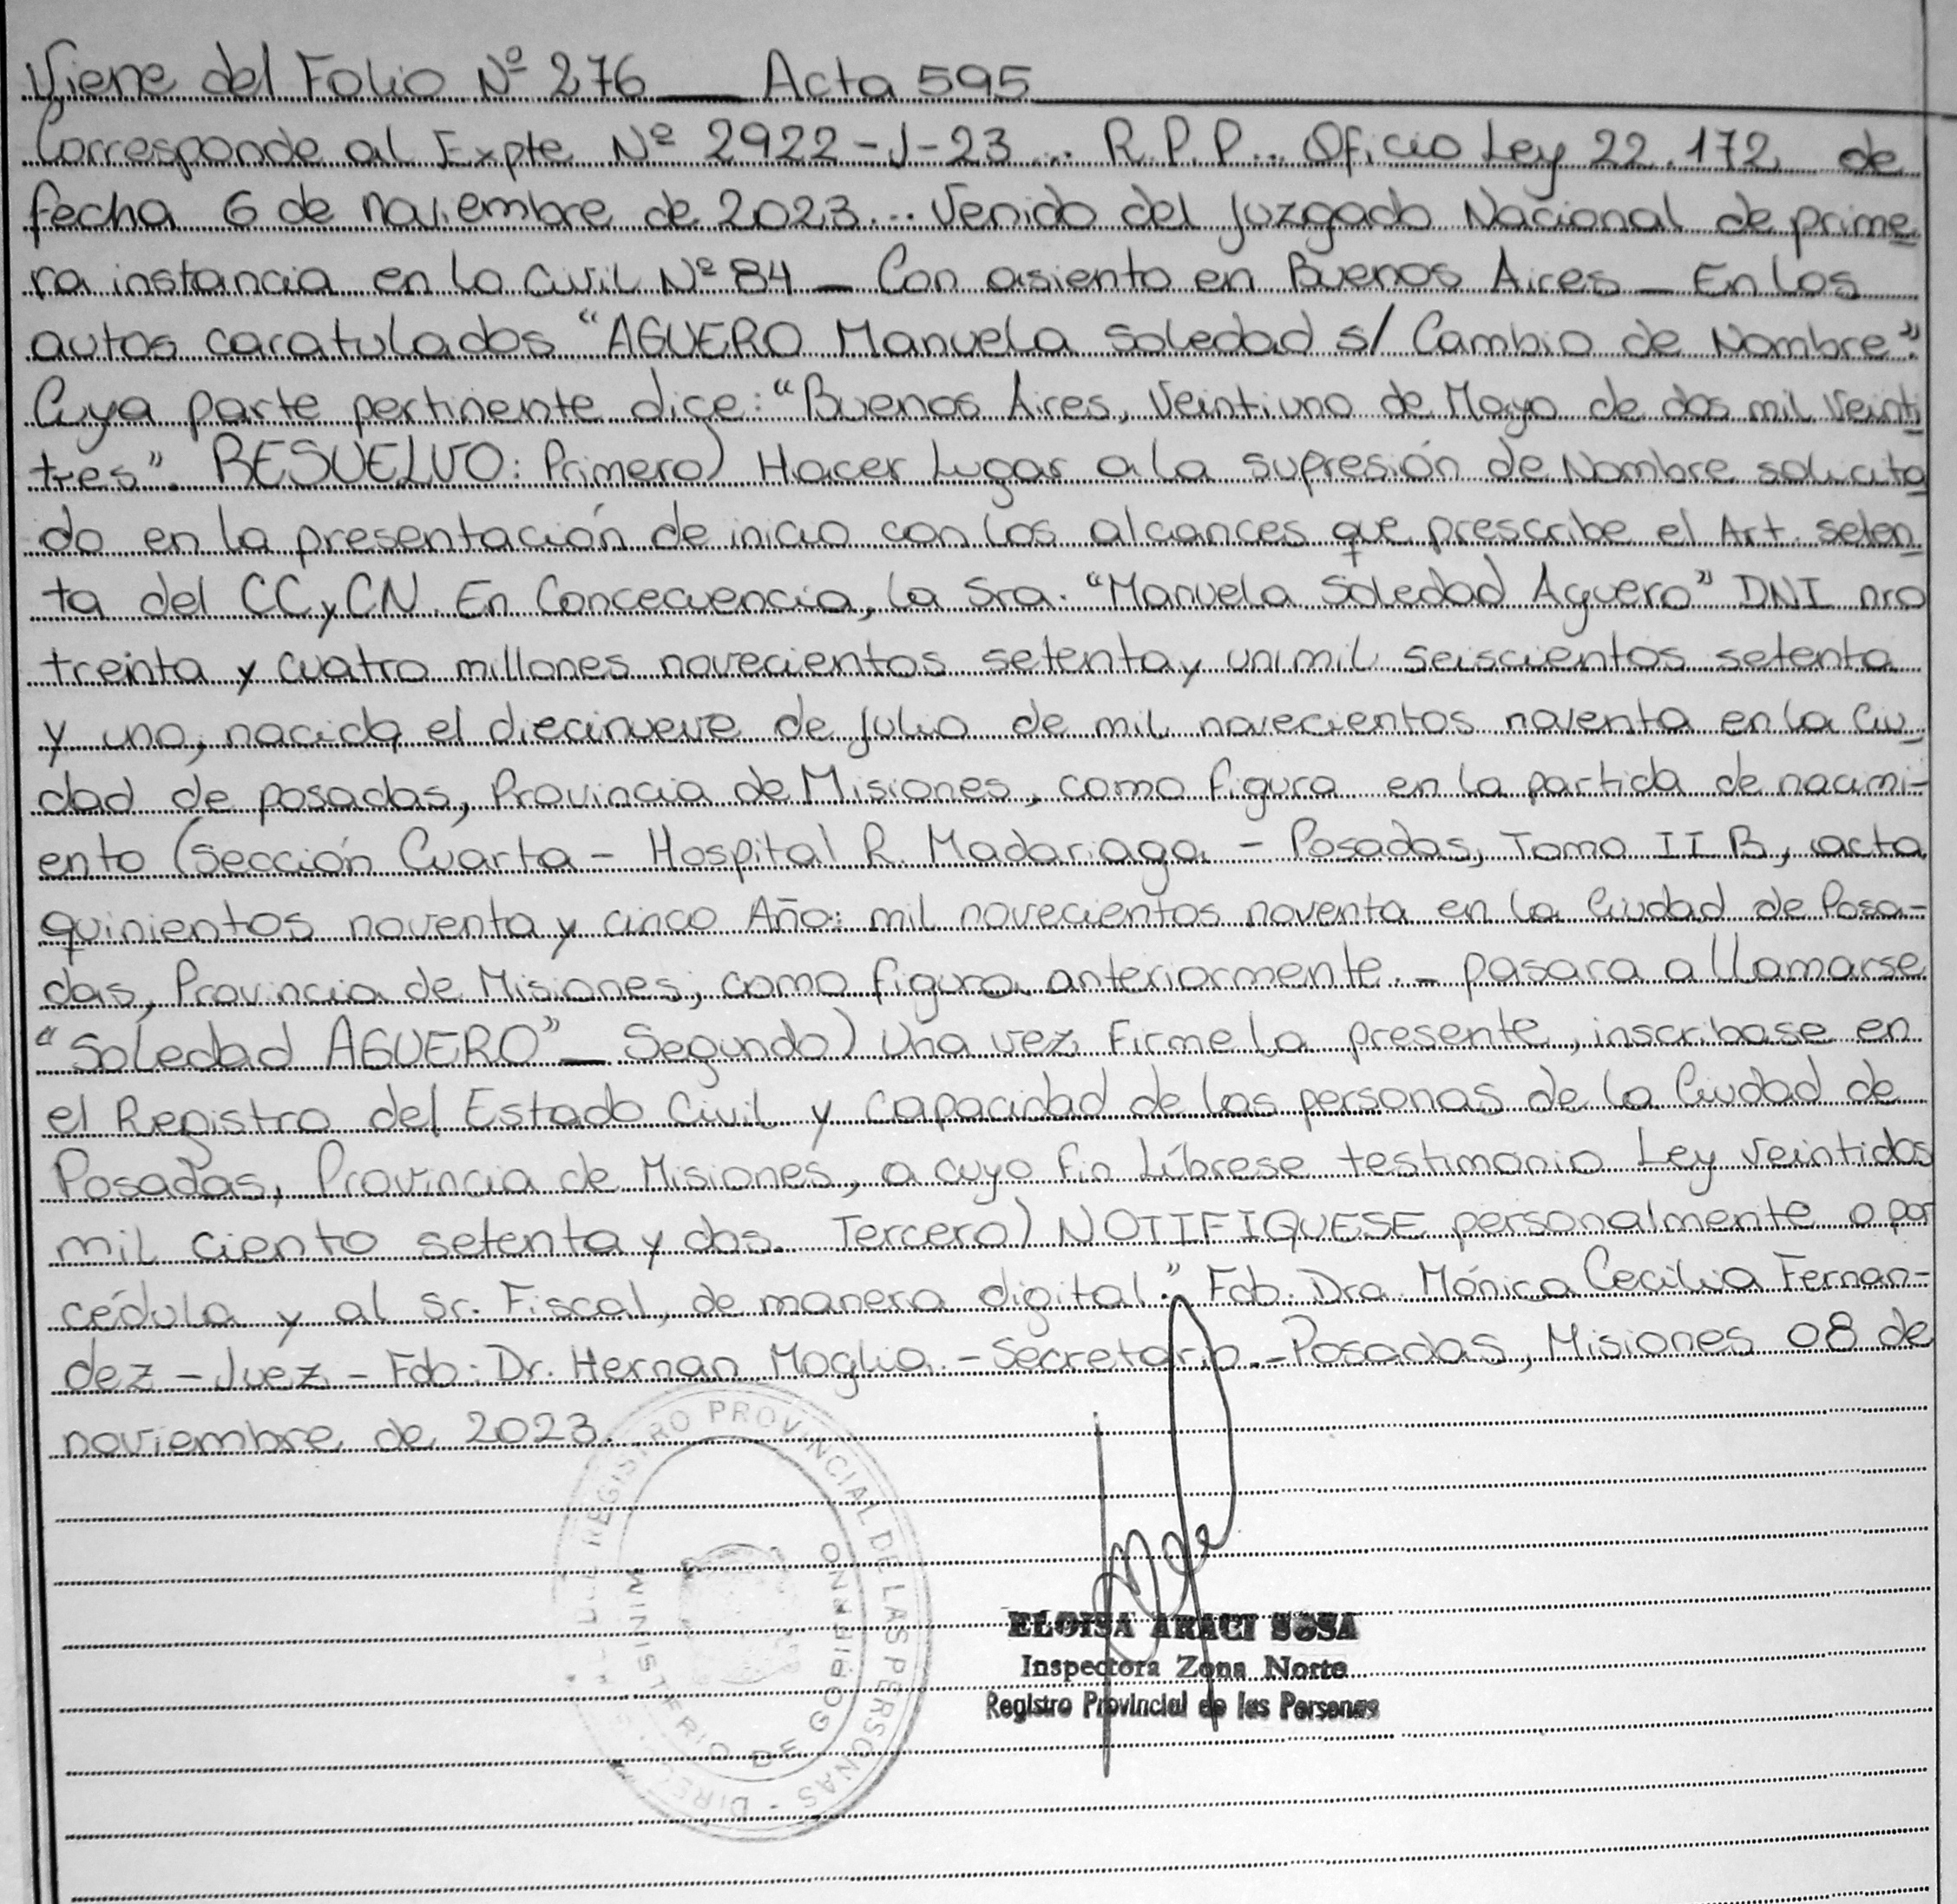 Viene del Folio Nº 276 — Acta 595
Corresponde al Expte Nº 2922-J-23... R.P.P... Oficio Ley 22.172 de
fecha 6 de noviembre de 2023... Venido del Juzgado Nacional de prime
ra instancia en lo Civil Nº 84 — Con asiento en Buenos Aires — En los
autos caratulados "AGUERO Manuela Soledad s/ Cambio de Nombre".
Cuya parte pertinente dice: "Buenos Aires, Veintiuno de Mayo de dos mil veinti
tres". RESUELVO: Primero) Hacer Lugar a la supresión de Nombre solicita
do en la presentación de inicio con los alcances que prescribe el Art. seten
ta del CCyCN. En Concecuencia, la Sra. "Manuela Soledad Aguero" DNI nro
treinta y cuatro millones novecientos setenta y un mil seiscientos setenta
y uno, nacida el diecinueve de Julio de mil novecientos noventa en la Ciu
dad de posadas, Provincia de Misiones, como figura en la partida de nacimi-
ento (sección Cuarta - Hospital R. Madariaga - Posadas, Tomo II B, acta
quinientos noventa y cinco Año: mil novecientos noventa en la Ciudad de Posa-
das, Provincia de Misiones, como figura anteriormente. - pasara a llamarse
"Soledad AGUERO" — Segundo) Una vez Firme la presente, inscribase en
el Registro del Estado Civil y Capacidad de las personas de la Ciudad de
Posadas, Provincia de Misiones, a cuyo fin Líbrese testimonio Ley veintidos
mil ciento setenta y dos. Tercero) NOTIFIQUESE personalmente o por
cédula y al Sr. Fiscal, de manera digital." Fdo. Dra. Mónica Cecilia Fernan-
dez - Juez - Fdo: Dr. Hernan Moglia - Secretario. - Posadas, Misiones 08 de
noviembre de 2023.
REGISTRO PROVINCIAL DE LAS PERSONAS
MINISTERIO DE GOBIERNO
ELOISA ARACI SOSA
Inspectora Zona Norte
Registro Provincial de las Personas